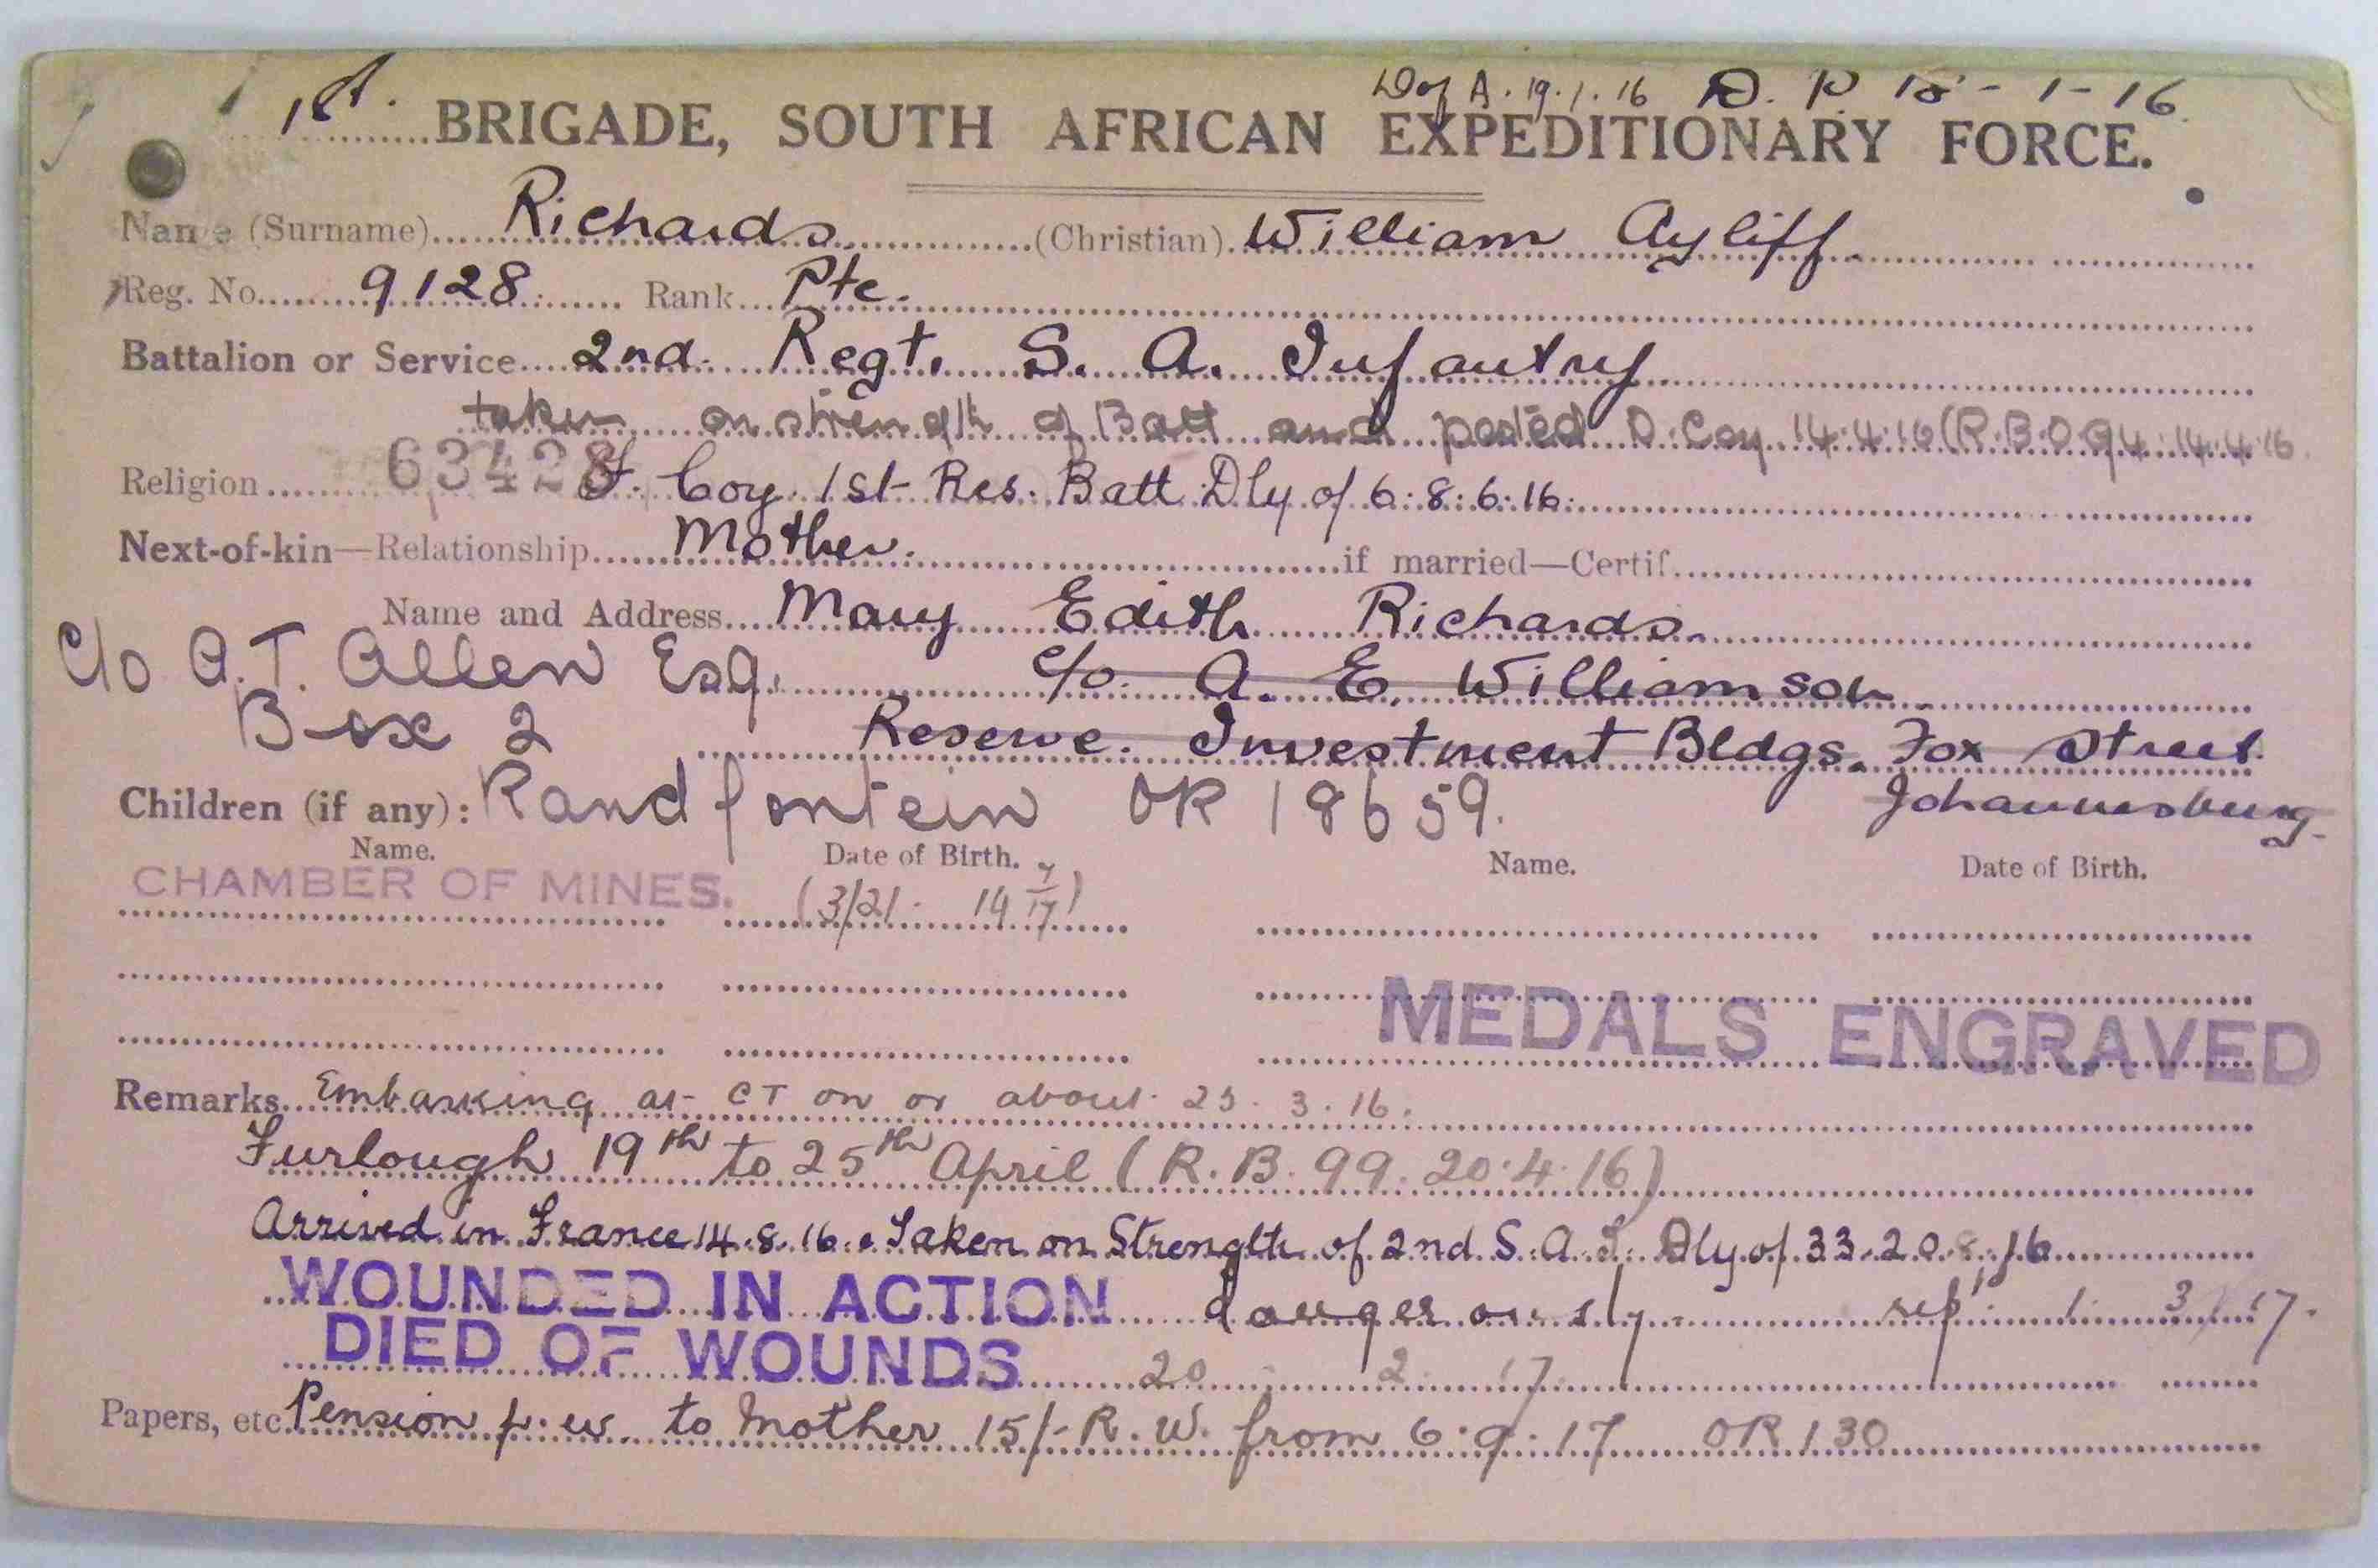 D of A. 19.1.16 D. P. 18-1-16
1st. BRIGADE, SOUTH AFRICAN EXPEDITIONARY FORCE.
Name (Surname) Richards (Christian) William Ayliff.
Reg. No. 9128 Rank Pte.
Battalion or Service 2nd. Regt. S. A. Infantry
taken on strength of Batt and posted D. Coy 14.4.16 (R.B.O 94 14.4.16
Religion 63428 F. Coy 1st Res. Batt Dly of 6:8:6:16
Next-of-kin—Relationship Mother. if married—Certif.
Name and Address Mary Edith Richards.
c/o A.T. Allen Esq. c/o. A. E. Williamson
Box 2 Reserve Investment Bldgs. Fox Street
Children (if any): Randfontein OR 18659. Johannesburg.
Name. Date of Birth. Name. Date of Birth.
CHAMBER OF MINES. (3/21 14 7/17)
MEDALS ENGRAVED
Remarks Embarking at CT on or about 25.3.16.
Furlough 19th to 25th April (R.B. 99. 20.4.16)
Arrived in France 14.8.16. Taken on Strength of 2nd S.A.I. Dly of 33.20.8.16
WOUNDED IN ACTION dangerously 17.
DIED OF WOUNDS 20 2 17
Papers, etc. Pension p.w. to Mother 15/- R.W. from 6.9.17 OR 130